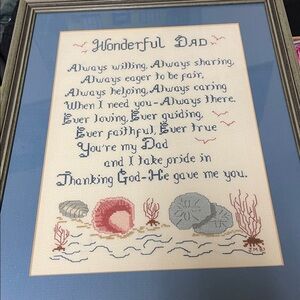 Wonderful Dad
Always willing, Always sharing,
Always eager to be fair,
Always helping, Always caring
When I need you- Always there.
Ever loving, Ever guiding,
Ever faithful, Ever true
You're my Dad
and I take pride in
Thanking God-He gave me you.